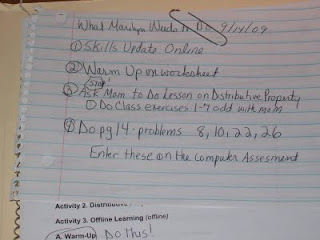 What Marilyn Needs to Do 9/14/09
① Skills Update Online
② Warm Up on worksheet
STOP
③ Ask Mom to Do Lesson on Distributive Property
① Do Class exercises 1-7 odd with mom
④ Do pg 14 - problems 8, 10, 22, 26
Enter these on the computer Assesment
Activity 2. Distributive
Activity 3. Offline Learning (offline)
A. Warm-Up Do this!